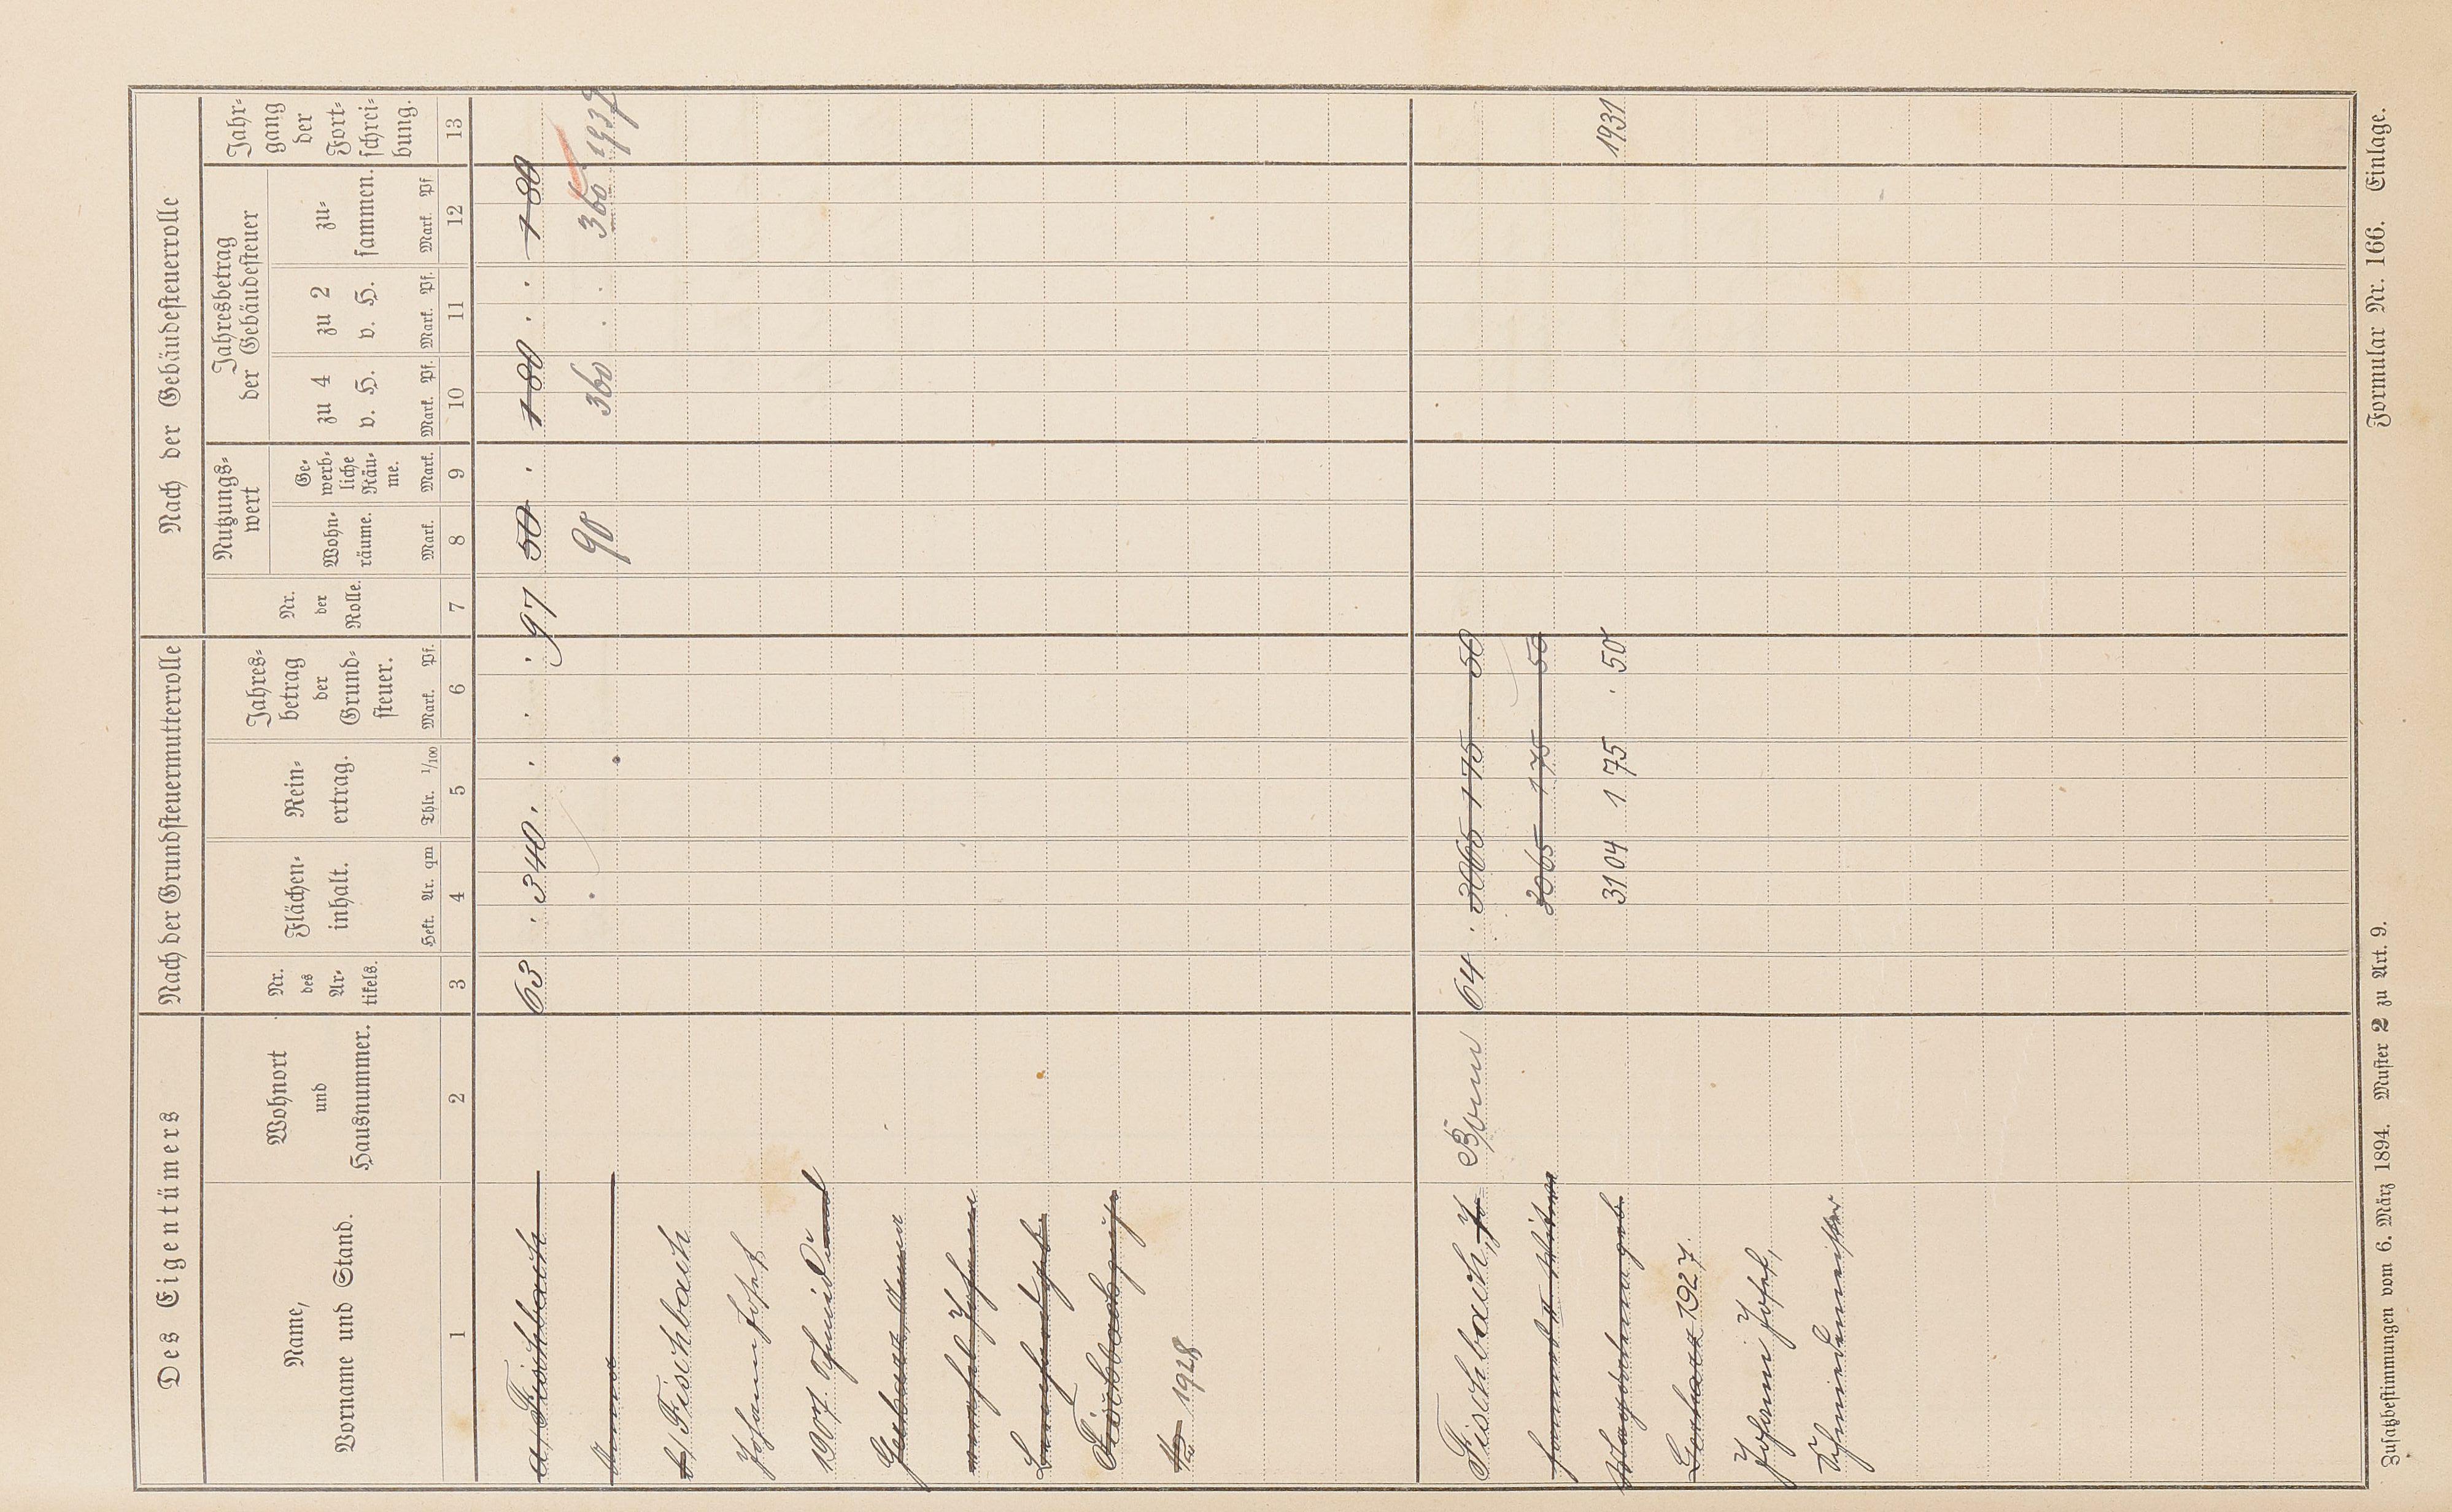 Des Eigentümers
Nach der Grundsteuermutterrolle
Nach der Gebäudesteuerrolle
Name,
Vorname und Stand.
Wohnort
und
Hausnummer.
Nr.
des
Ar-
tikels.
Flächen-
inhalt.
Hekt. Ar. qm
Rein-
ertrag.
Thlr. 1/100
Jahres-
betrag
der
Grund-
steuer.
Mark. Pf.
Nr.
der
Rolle.
Nutzungs-
wert
Wohn-
räume.
Mark.
Ge-
werb-
liche
Räu-
me.
Mark.
Jahresbetrag
der Gebäudesteuer
zu 4
v. H.
Mark. Pf.
zu 2
v. H.
Mark. Pf.
zu-
sammen.
Mark. Pf
Jahr-
gang
der
Fort-
schrei-
bung.
1 2 3 4 5 6 7 8 9 10 11 12 13
a/ Fischbach 63 . 3 40 . . . . 97 50 . 1 80 . . 1 80
Anna 90 3 60 . . 3 60 1937
b/ Fischbach
Johann Josef
1907. Schmid und
Gerhard, Anna
Fischbach
1928
Fischbach, Bonn 64 . 30 65 1 75 50
30 65 1 75 50
Magdalena geb. 31 04 1 75 . 50 1931
1927.
Johann Josef,
Schmiedemeister
Zusatzbestimmungen vom 6. März 1894. Muster 2 zu Art. 9.
Formular Nr. 166. Einlage.